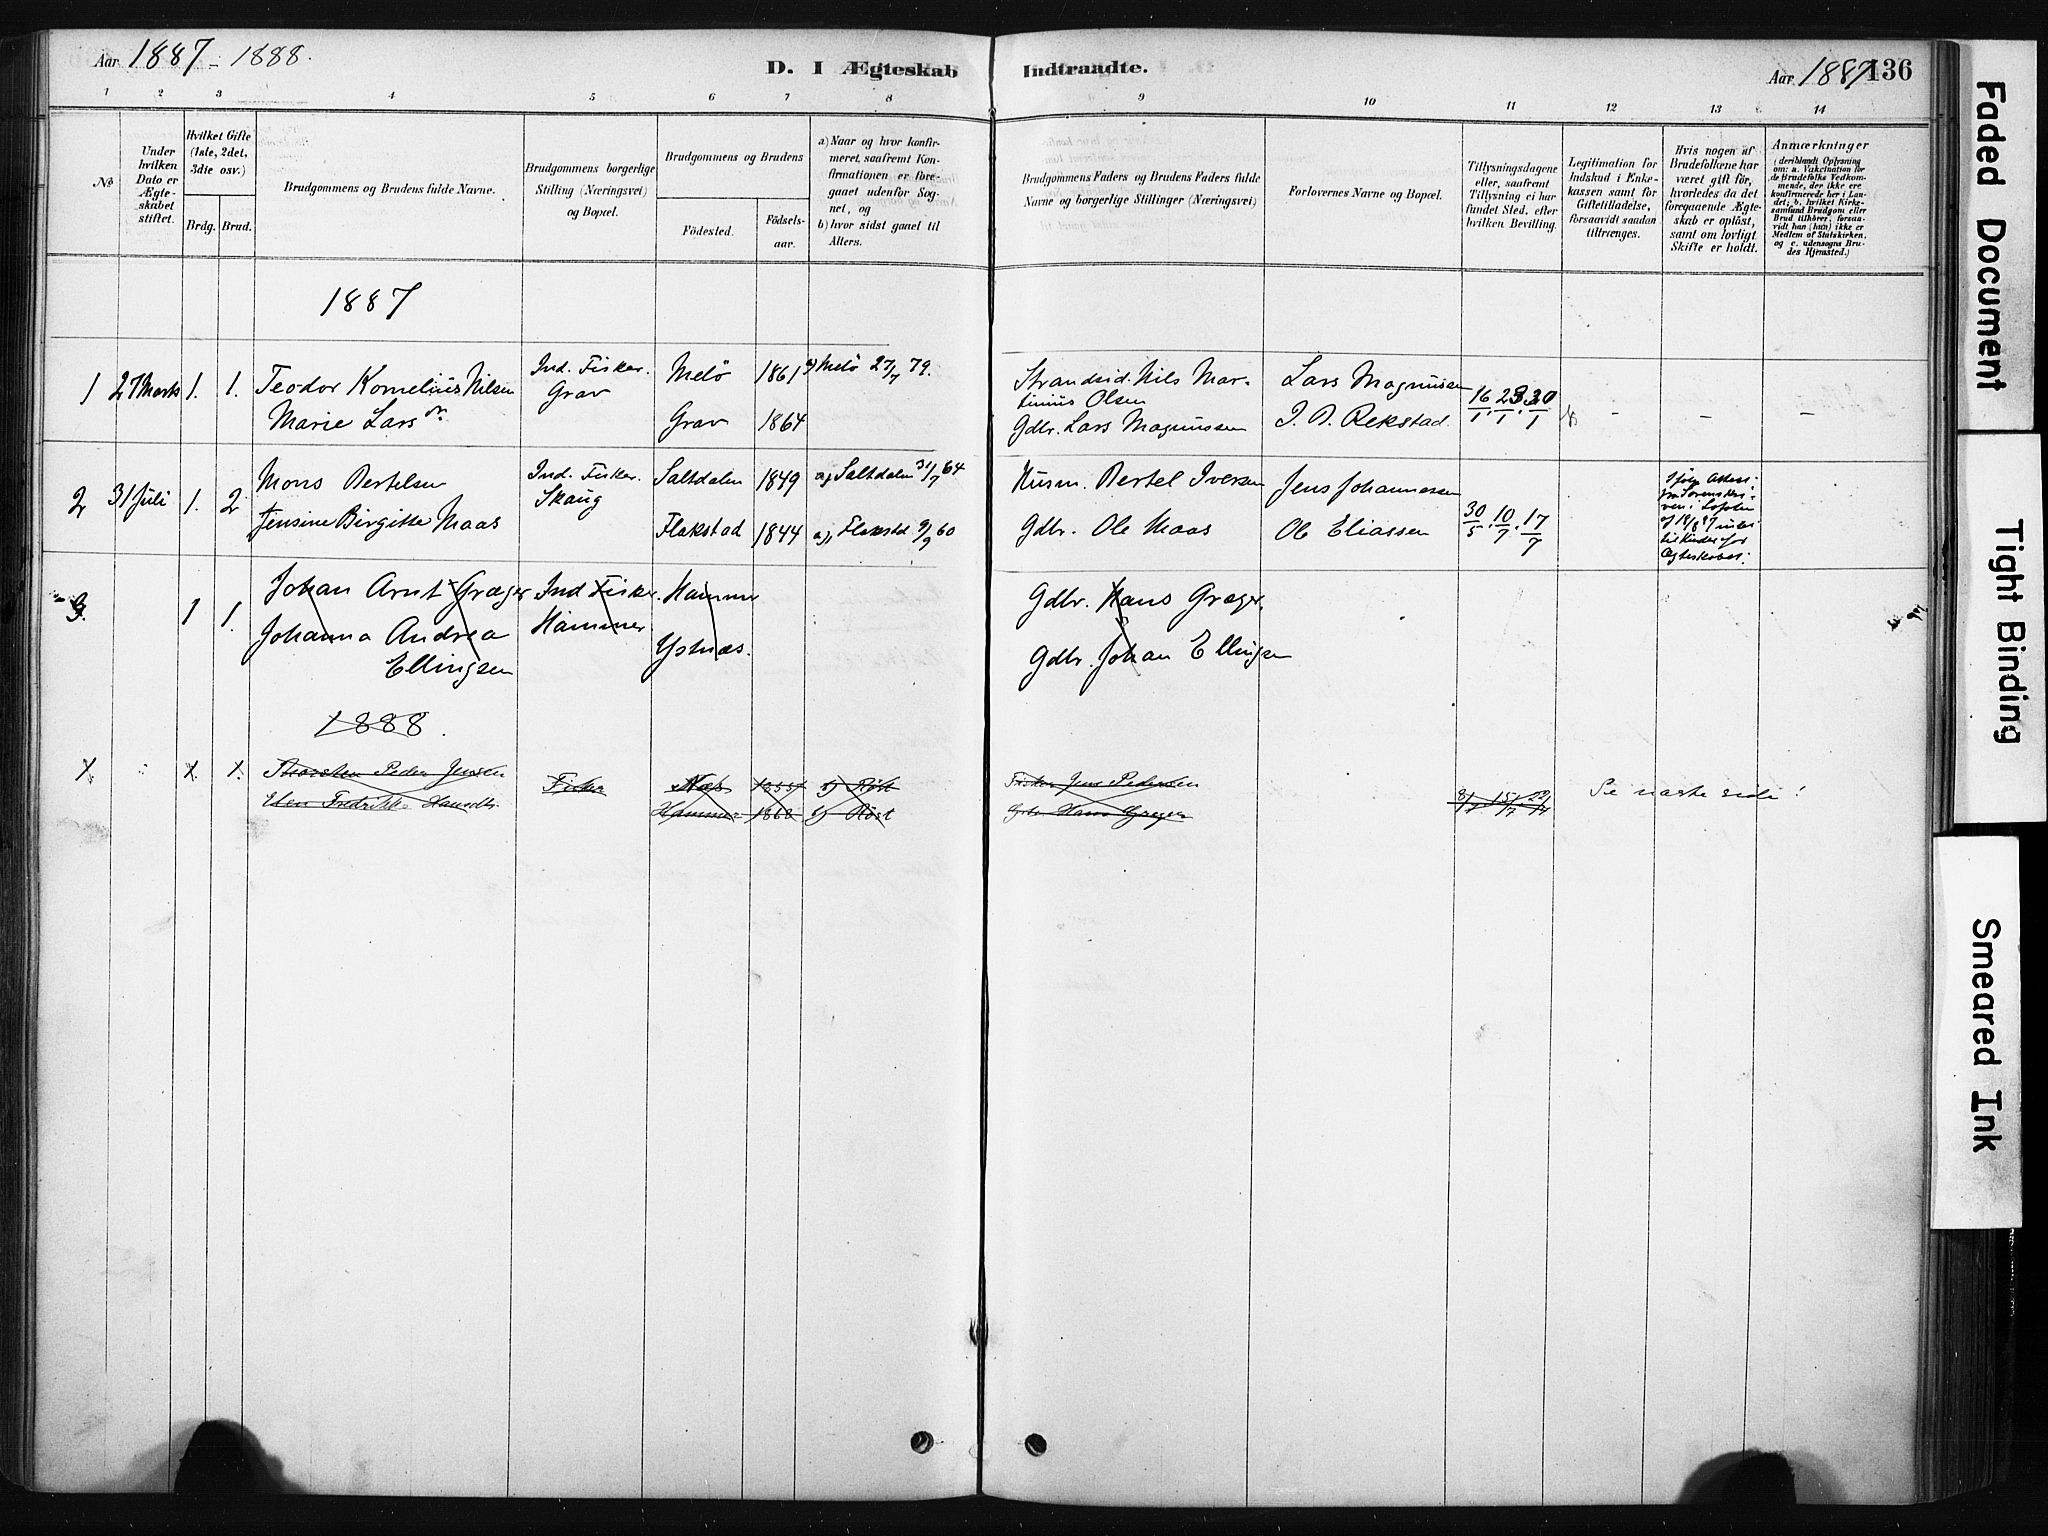 Aar 1887 - 1888.
D. I Ægteskab Indtraadte.
Aar 1887
136
1 2 3 4 5 6 7 8 9 10 11 12 13 14
No
Under hvilken Dato er Ægteskabet stiftet.
Hvilket Gifte (1ste, 2det, 3die osv.)
Brdg. Brud.
Brudgommens og Brudens fulde Navne.
Brudgommens borgerlige Stilling (Næringsvei) og Bopæl.
Brudgommens og Brudens
Födested.
Födselsaar.
a) Naar og hvor konfirmeret, saafremt Konfirmationen er foregaaet udenfor Sognet, og
b) hvor sidst gaaet til Alters.
Brudgommens Faders og Brudens Faders fulde Navne og borgerlige Stillinger (Næringsvei)
Forlovernes Navne og Bopæl.
Tillysningsdagene eller, saafremt Tillysning ei har fundet Sted, efter hvilken Bevilling.
Legitimation for Indskud i Enkekassen samt for Giftetilladelse, forsaavidt saadan tiltrænges.
Hvis nogen af Brudefolkene har været gift för, hvorledes da det foregaaende Ægteskab er oplöst, samt om lovligt Skifte er holdt.
Anmærkninger
(deriblandt Oplysning om: a. Vakcination för de Brudefolks Vedkommende, der ikke ere konfirmerede her i Landet; b. hvilket Kirkesamfund Brudgom eller Brud tilhörer, forsaavidt han (hun) ikke er Medlem of Statskirken, og c. udensogns Brudes Hjemsted.)
1887
1 27 Marts 1. 1. Teodor Kornelius Nilsen Ind. Fisker. Grav Melö 1861 Melö 27/7 79. Strandsid. Nils Martinius Olsen Lars Magnussen 16/1. 23/1. 30/1 - - -
Marie Larsdr. Grav 1864 Gdbr. Lars Magnussen J. D. Rekstad
2 31 Juli 1. 2 Mons Bertelsen Ind. Fisker. Skaug Saltdalen 1849 a) Saltdalen 31/7 64 Husm. Bertel Iversen Jens Johannessen
Jensine Birgitte Maas Flakstad 1844 a) Flakstd 9/9 60 Gdbr. Ole Maas Ole Eliassen 30/5. 10/7. 17/7
3. 1 1. Johan Arnt Græger Ind Fisker. Hammer Hammer Gdbr. Hans Græger.
Johanna Andrea Ellingsen Ystnæs. Gdbr. Johan Ellingsen
1888.
1. 1. 1. Peder Jensen Fisker Næs b) Röst Fisker Jens Pedersen
Elen Fredrikke Hansdtr. Hammer 1868 b) Röst Hans Græger
Se næste side!
Faded Document
Tight Binding
Smeared Ink